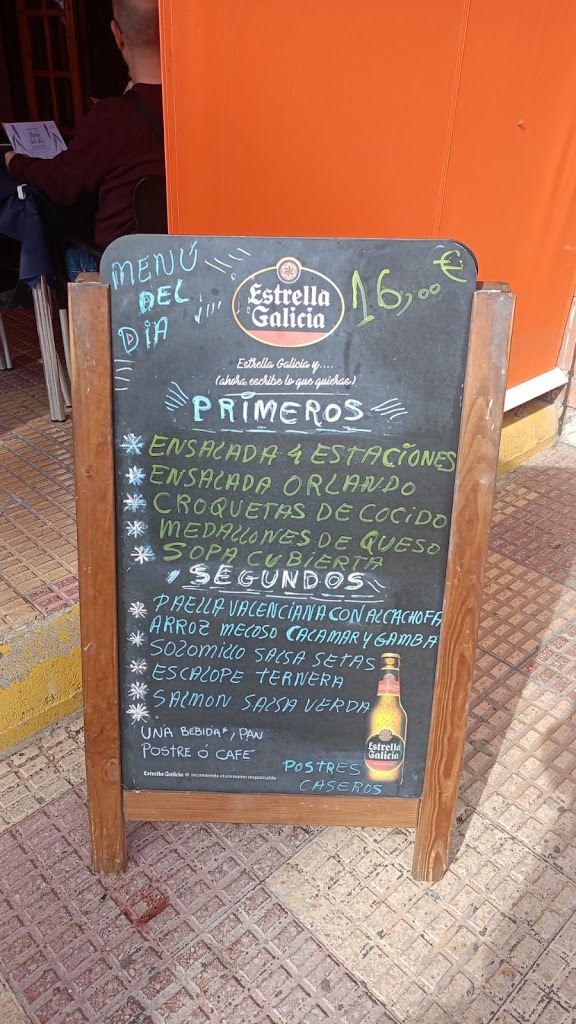 MENÚ
DEL
DIA
Estrella
Galicia
16,00 €
Estrella Galicia y....
(ahora escribe lo que quieras)
PRIMEROS
ENSALADA 4 ESTACIONES
ENSALADA ORLANDO
CROQUETAS DE COCIDO
MEDALLONES DE QUESO
SOPA CUBIERTA
SEGUNDOS
PAELLA VALENCIANA CON ALCACHOFA
ARROZ MELOSO CALAMAR Y GAMBA
SOLOMILLO SALSA SETAS
ESCALOPE TERNERA
SALMON SALSA VERDA
UNA BEBIDA*, PAN
POSTRE Ó CAFÉ
Estrella
Galicia
POSTRES
CASEROS
Estrella Galicia recomienda el consumo responsable